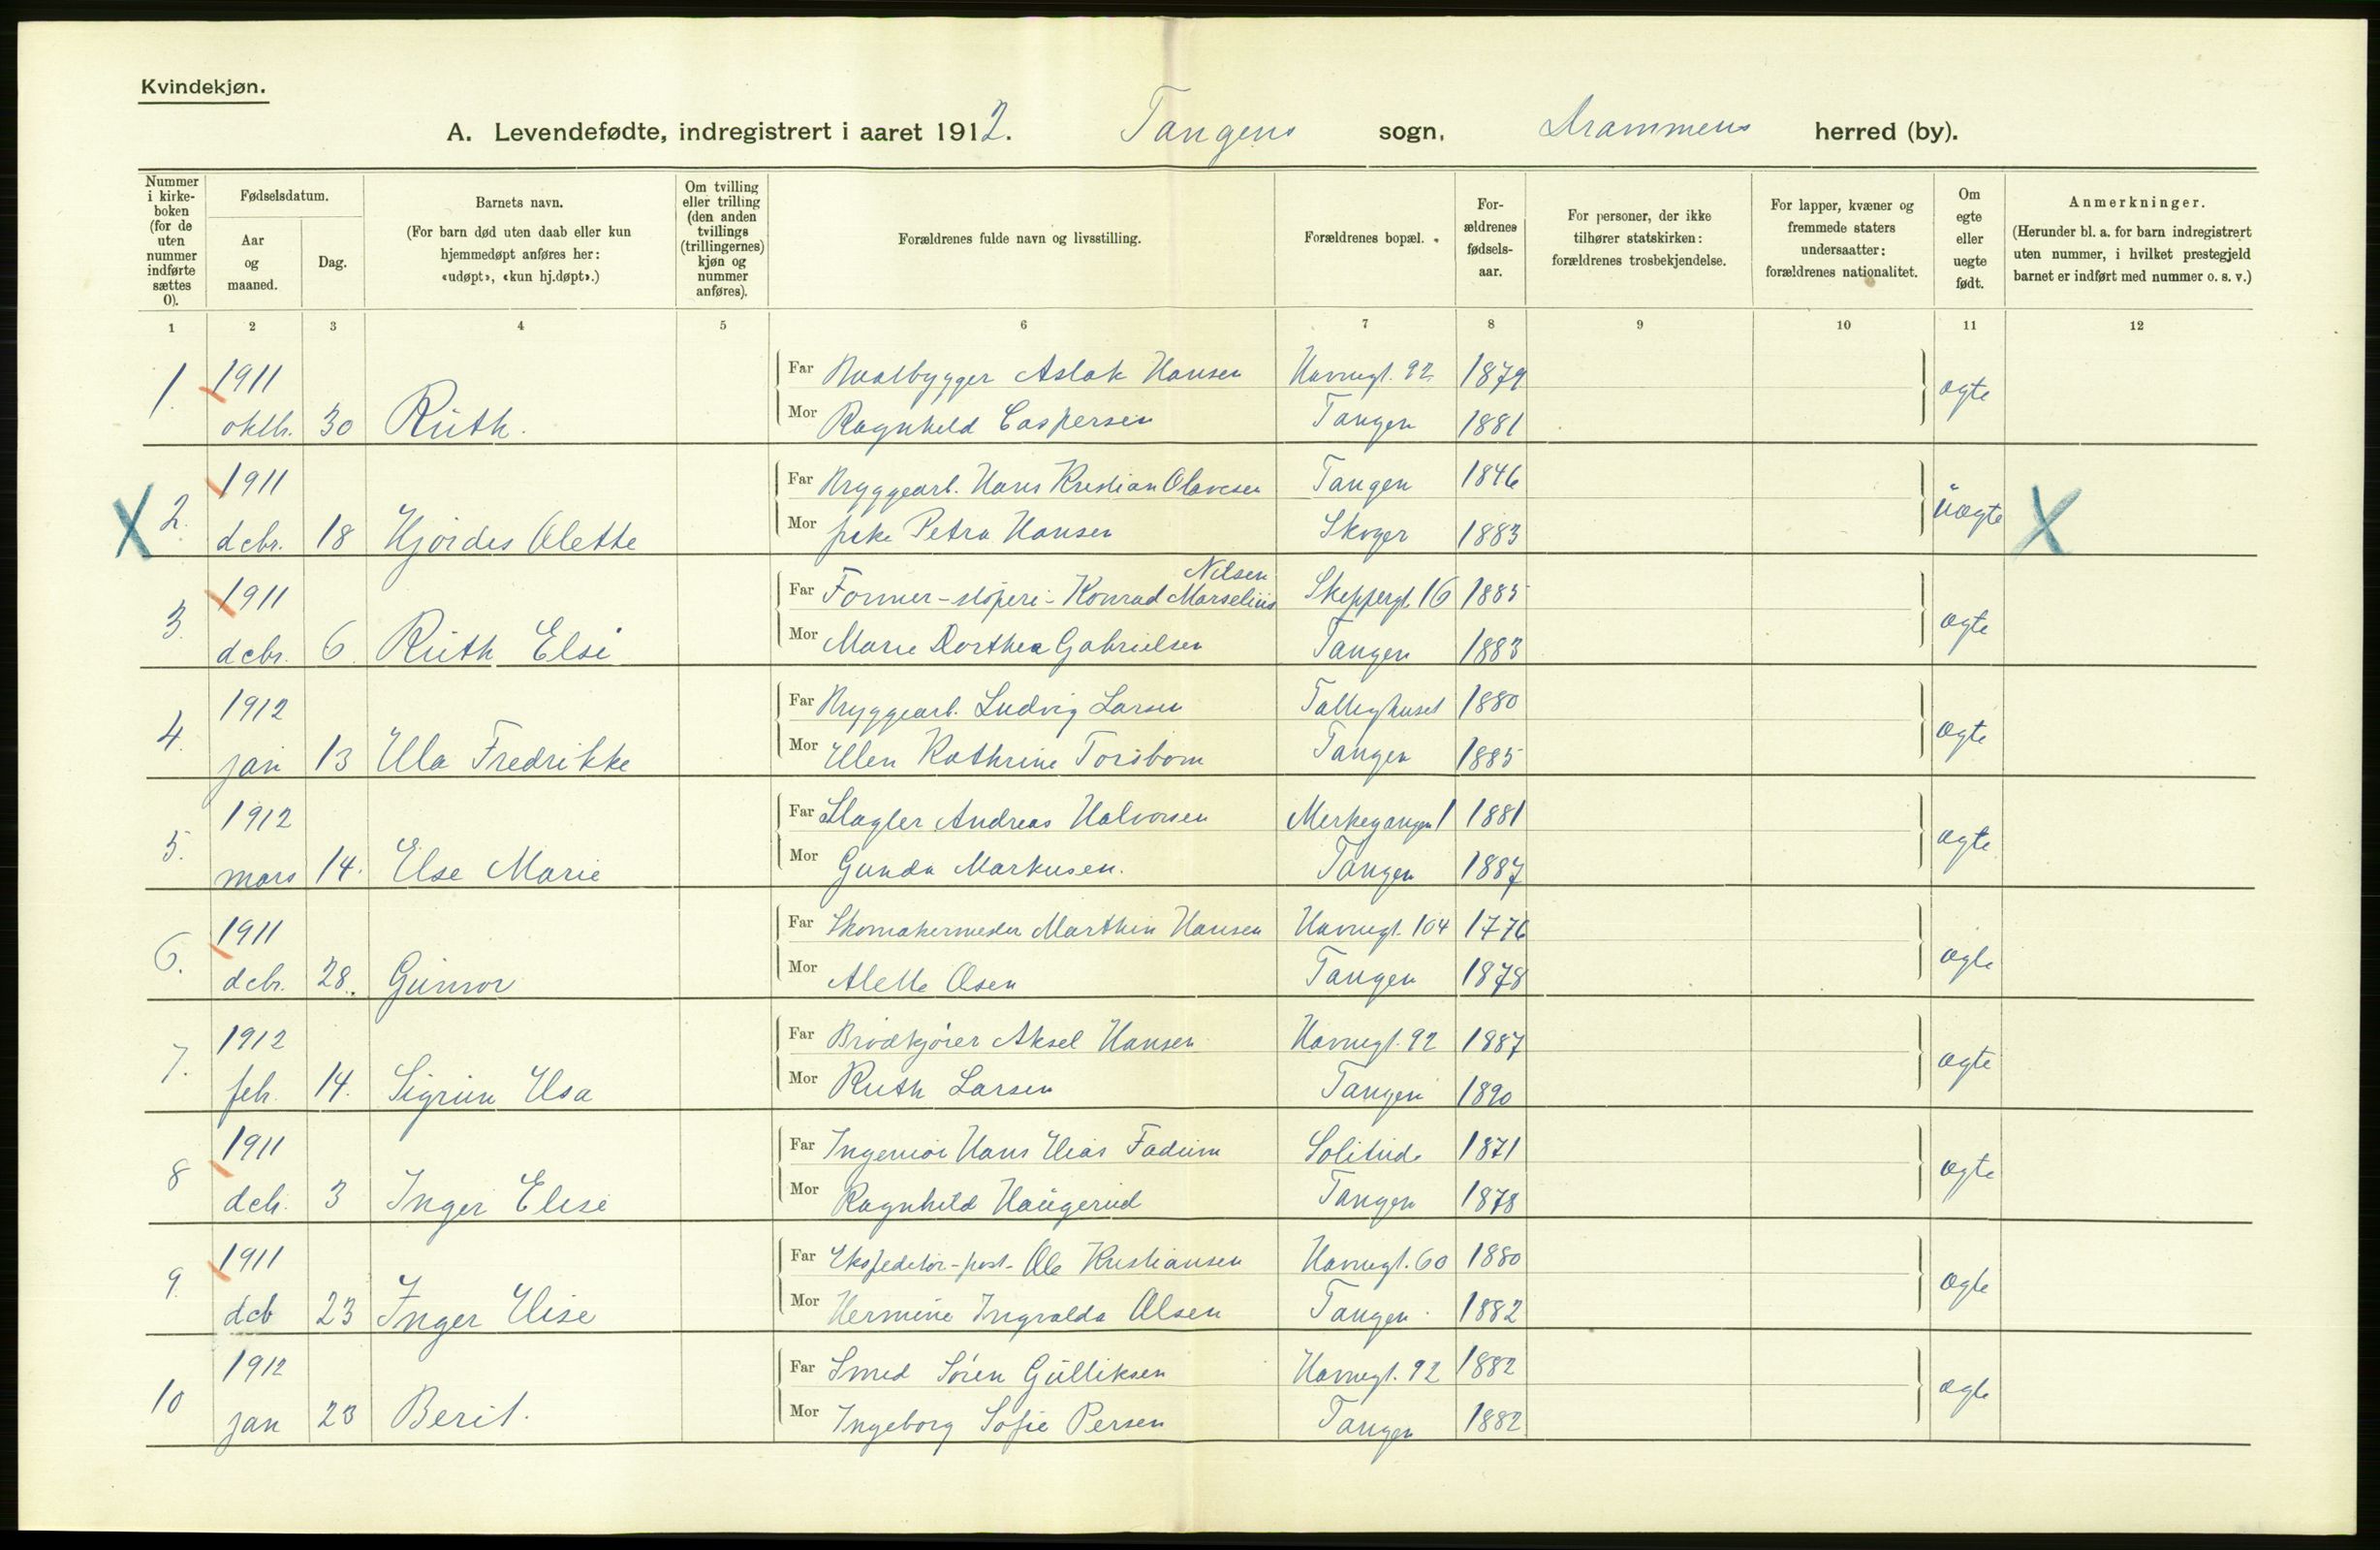 Kvindekjøn.
A. Levendefødte, indregistrert i aaret 1912. Tangens sogn, Drammens herred (by).
Nummer i kirkeboken (for de uten nummer indførte sættes 0).
Fødselsdatum.
Aar og maaned.
Dag.
Barnets navn.
(For barn død uten daab eller kun hjemmedøpt anføres her: «udøpt», «kun hj.døpt».)
Om tvilling eller trilling (den anden tvillings (trillingernes) kjøn og nummer anføres).
Forældrenes fulde navn og livsstilling.
Forældrenes bopæl.
Forældrenes fødselsaar.
For personer, der ikke tilhører statskirken: forældrenes trosbekjendelse.
For lapper, kvæner og fremmede staters undersaatter: forældrenes nationalitet.
Om egte eller uegte født.
Anmerkninger.
(Herunder bl. a. for barn indregistrert uten nummer, i hvilket prestegjeld barnet er indført med nummer o. s. v.)
1 2 3 4 5 6 7 8 9 10 11 12
1. 1911 Far Baatbygger Aslak Hansen Havnegt. 92 1879 ægte
oktb. 30 Ruth. Mor Ragnhild Caspersen Tangen 1881
X 2. 1911 Far Bryggearb. Hans Kristian Olavesen Tangen 1846 uægte X
debr. 18 Hjördis Olette Mor pike Petra Hansen Skoger 1883
Nilsen
3. 1911 Far Former-støperi- Konrad Marselius Skippergt. 16 1885 ægte
debr. 6. Ruth Elsi Mor Marie Dorthea Gabrielsen Tangen 1883
4. 1912 Far Bryggearb. Ludvig Larsen 1880 ægte
jan 13 Ella Fredrikke Mor Ellen Kathrine Torsbom Tangen 1885
5. 1912 Far Slagter Andreas Halvorsen Merkegangen 1 1881 ægte
mars 14. Else Marie Mor Gunda Markusen. Tangen 1887
6. 1911 Far Skomakermester Marthin Hansen Havnegt. 104 1776 ægte
debr. 28. Gunvor Mor Alette Olsen Tangen 1878
7. 1912 Far Brödkjörer Aksel Hansen Havnegt. 92 1887 ægte
feb. 14. Sigrun Elsa Mor Ruth Larsen Tangen 1890
8 1911 Far Ingeniör Hans Elias Fadum Solitude 1871 ægte
deb. 3 Inger Elise Mor Ragnhild Haugerud Tangen 1878
9. 1911 Far Ekspeditör-post- Ole Kristiansen Havnegt. 60 1880 ægte
deb 23 Inger Elise Mor Hermine Ingvalda Olsen Tangen 1882
10 1912 Far Smed Sören Gulliksen Havnegt. 92 1882 ægte
jan 23 Berit. Mor Ingeborg Sofie Persen Tangen 1882